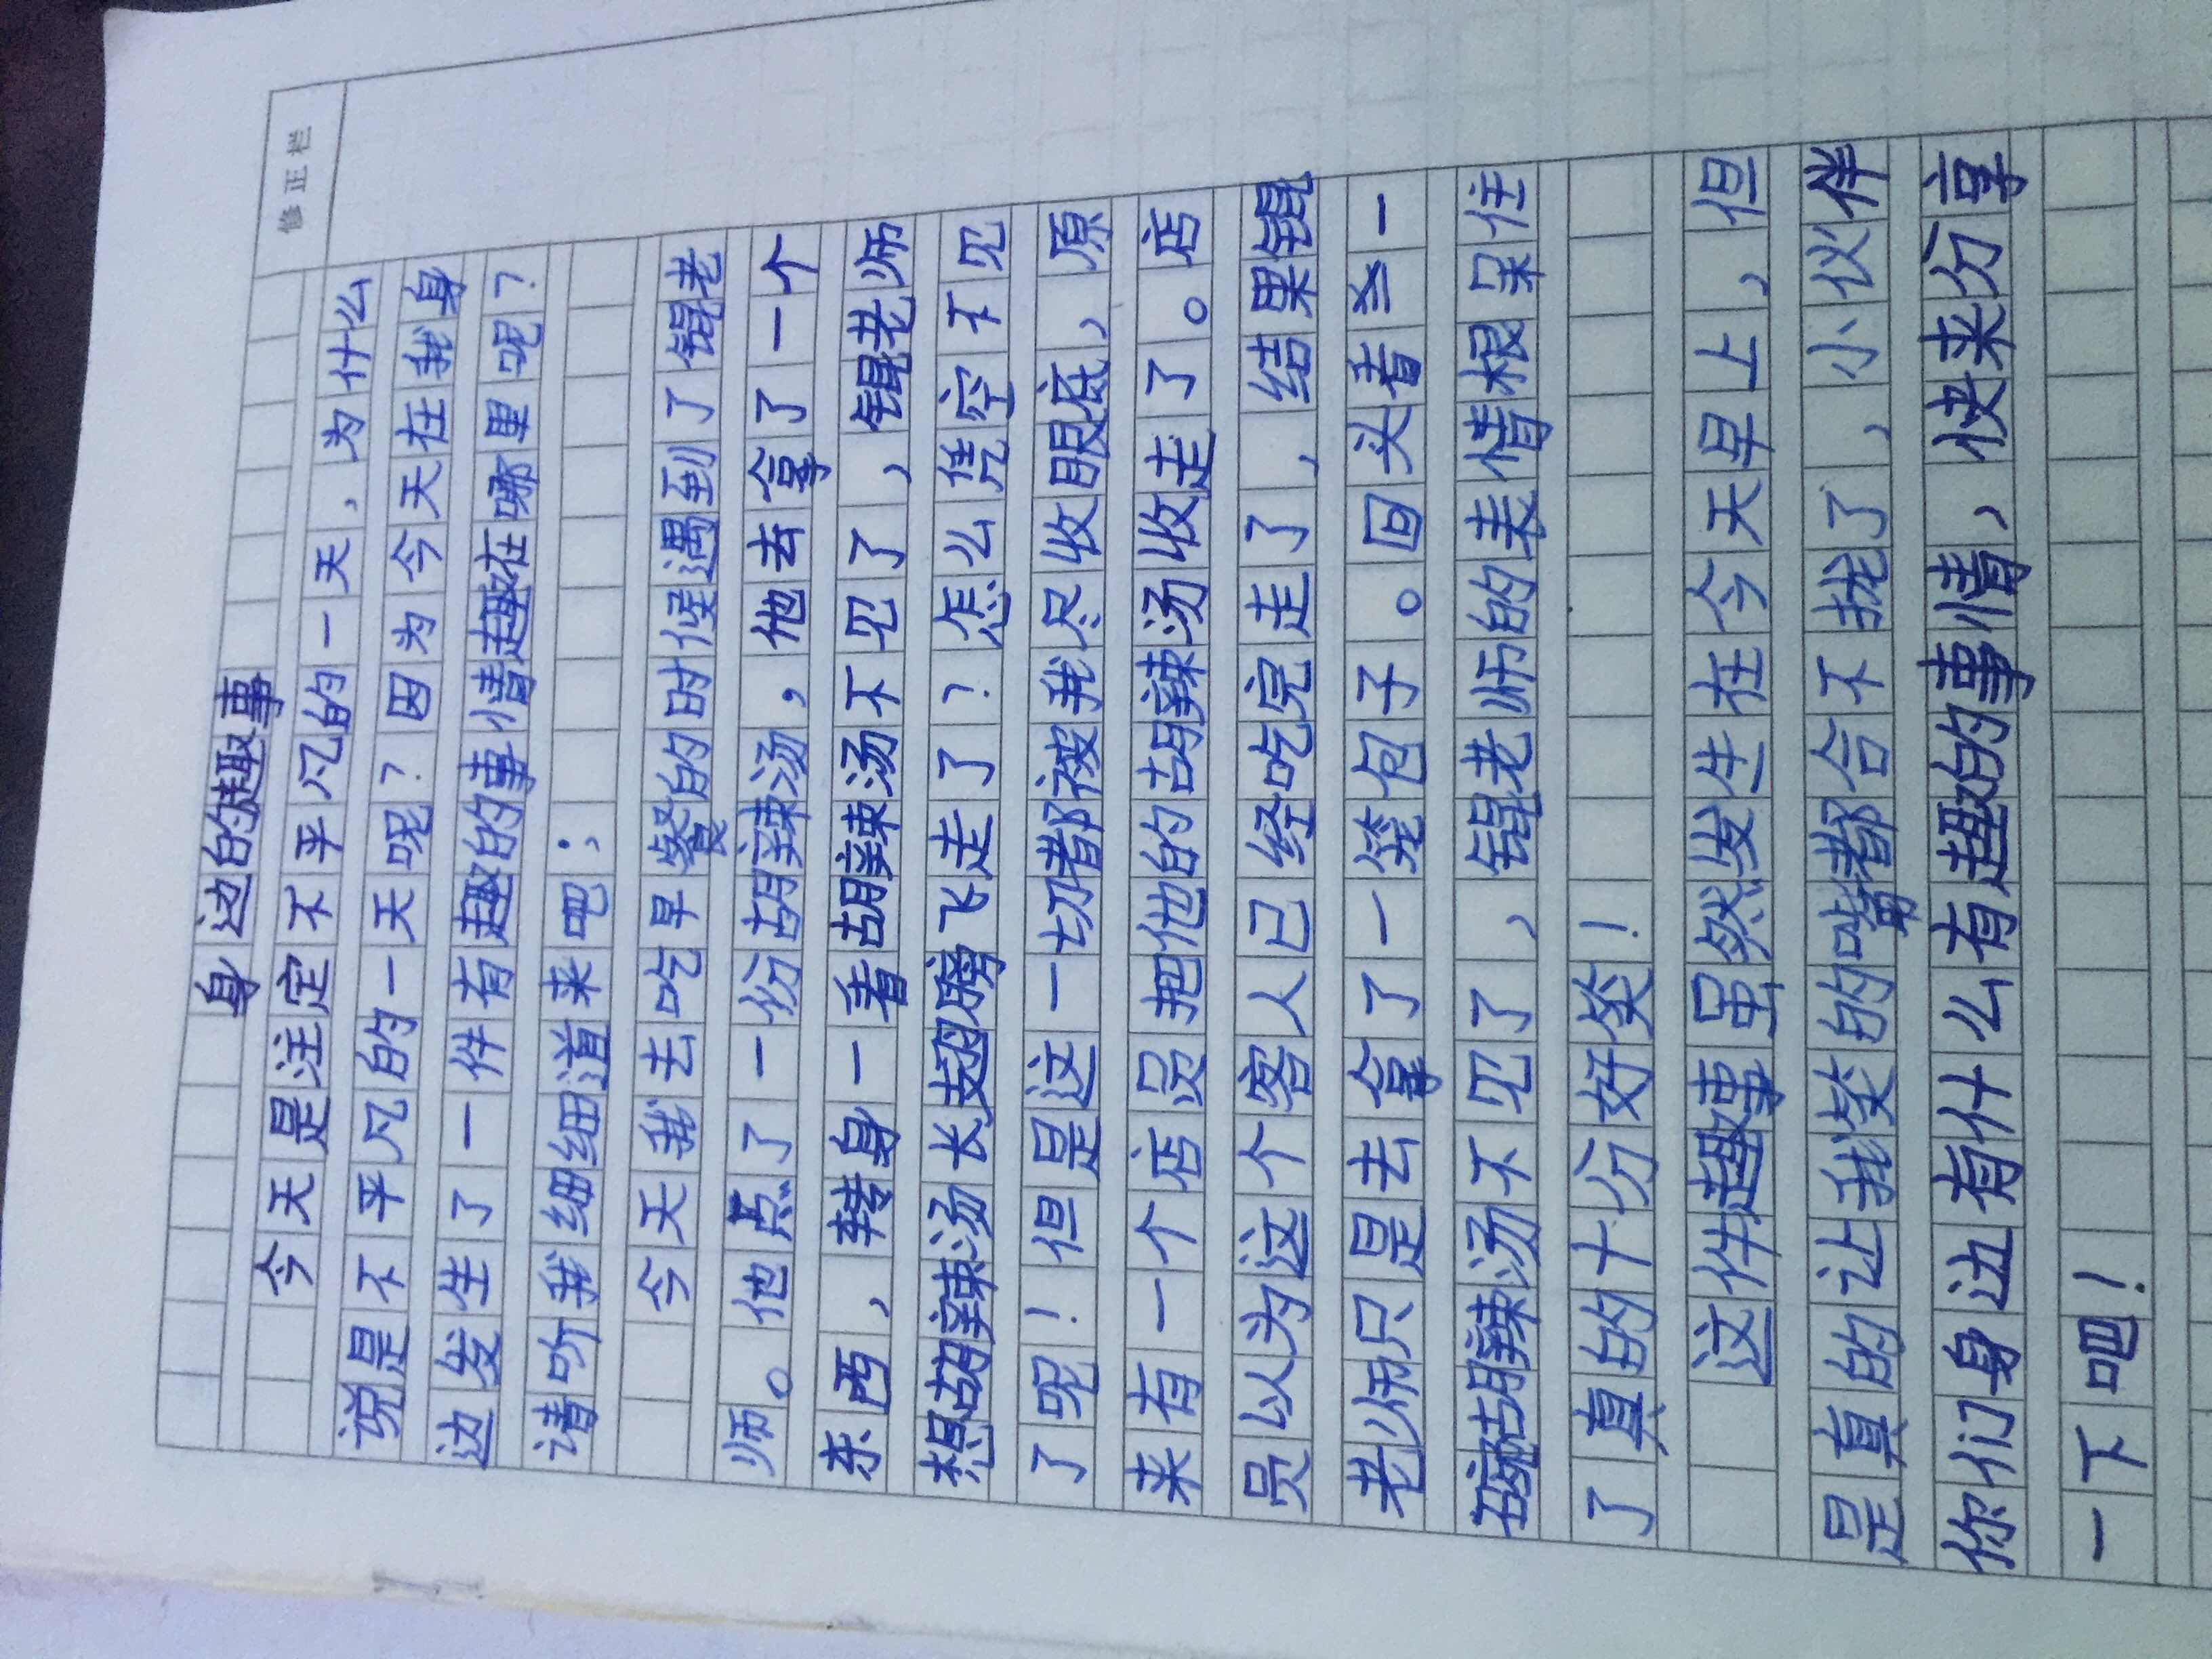 修正栏
身边的趣事
今天是注定不平凡的一天，为什么
说是不平凡的一天呢？因为今天在我身
边发生了一件有趣的事情趣在哪里呢？
请听我细细道来吧；
今天我去吃早餐的时候遇到了锟老
师。他点了一份胡辣汤，他去拿了一个
东西，转身一看胡辣汤不见了，锟老师
想胡辣汤长翅膀飞走了？怎么凭空不见
了呢！但是这一切都被我尽收眼底，原
来有一个店员把他的胡辣汤收走了。店
员以为这个客人已经吃完走了，结果锟
老师只是去拿了一笼包子。回头看 一
碗胡辣汤不见了，锟老师的表情根呆住
了真的十分好笑！
这件趣事虽然发生在今天早上，但
是真的让我笑的嘴都合不拢了，小伙伴
你们身边有什么有趣的事情，快来分享
一下吧！